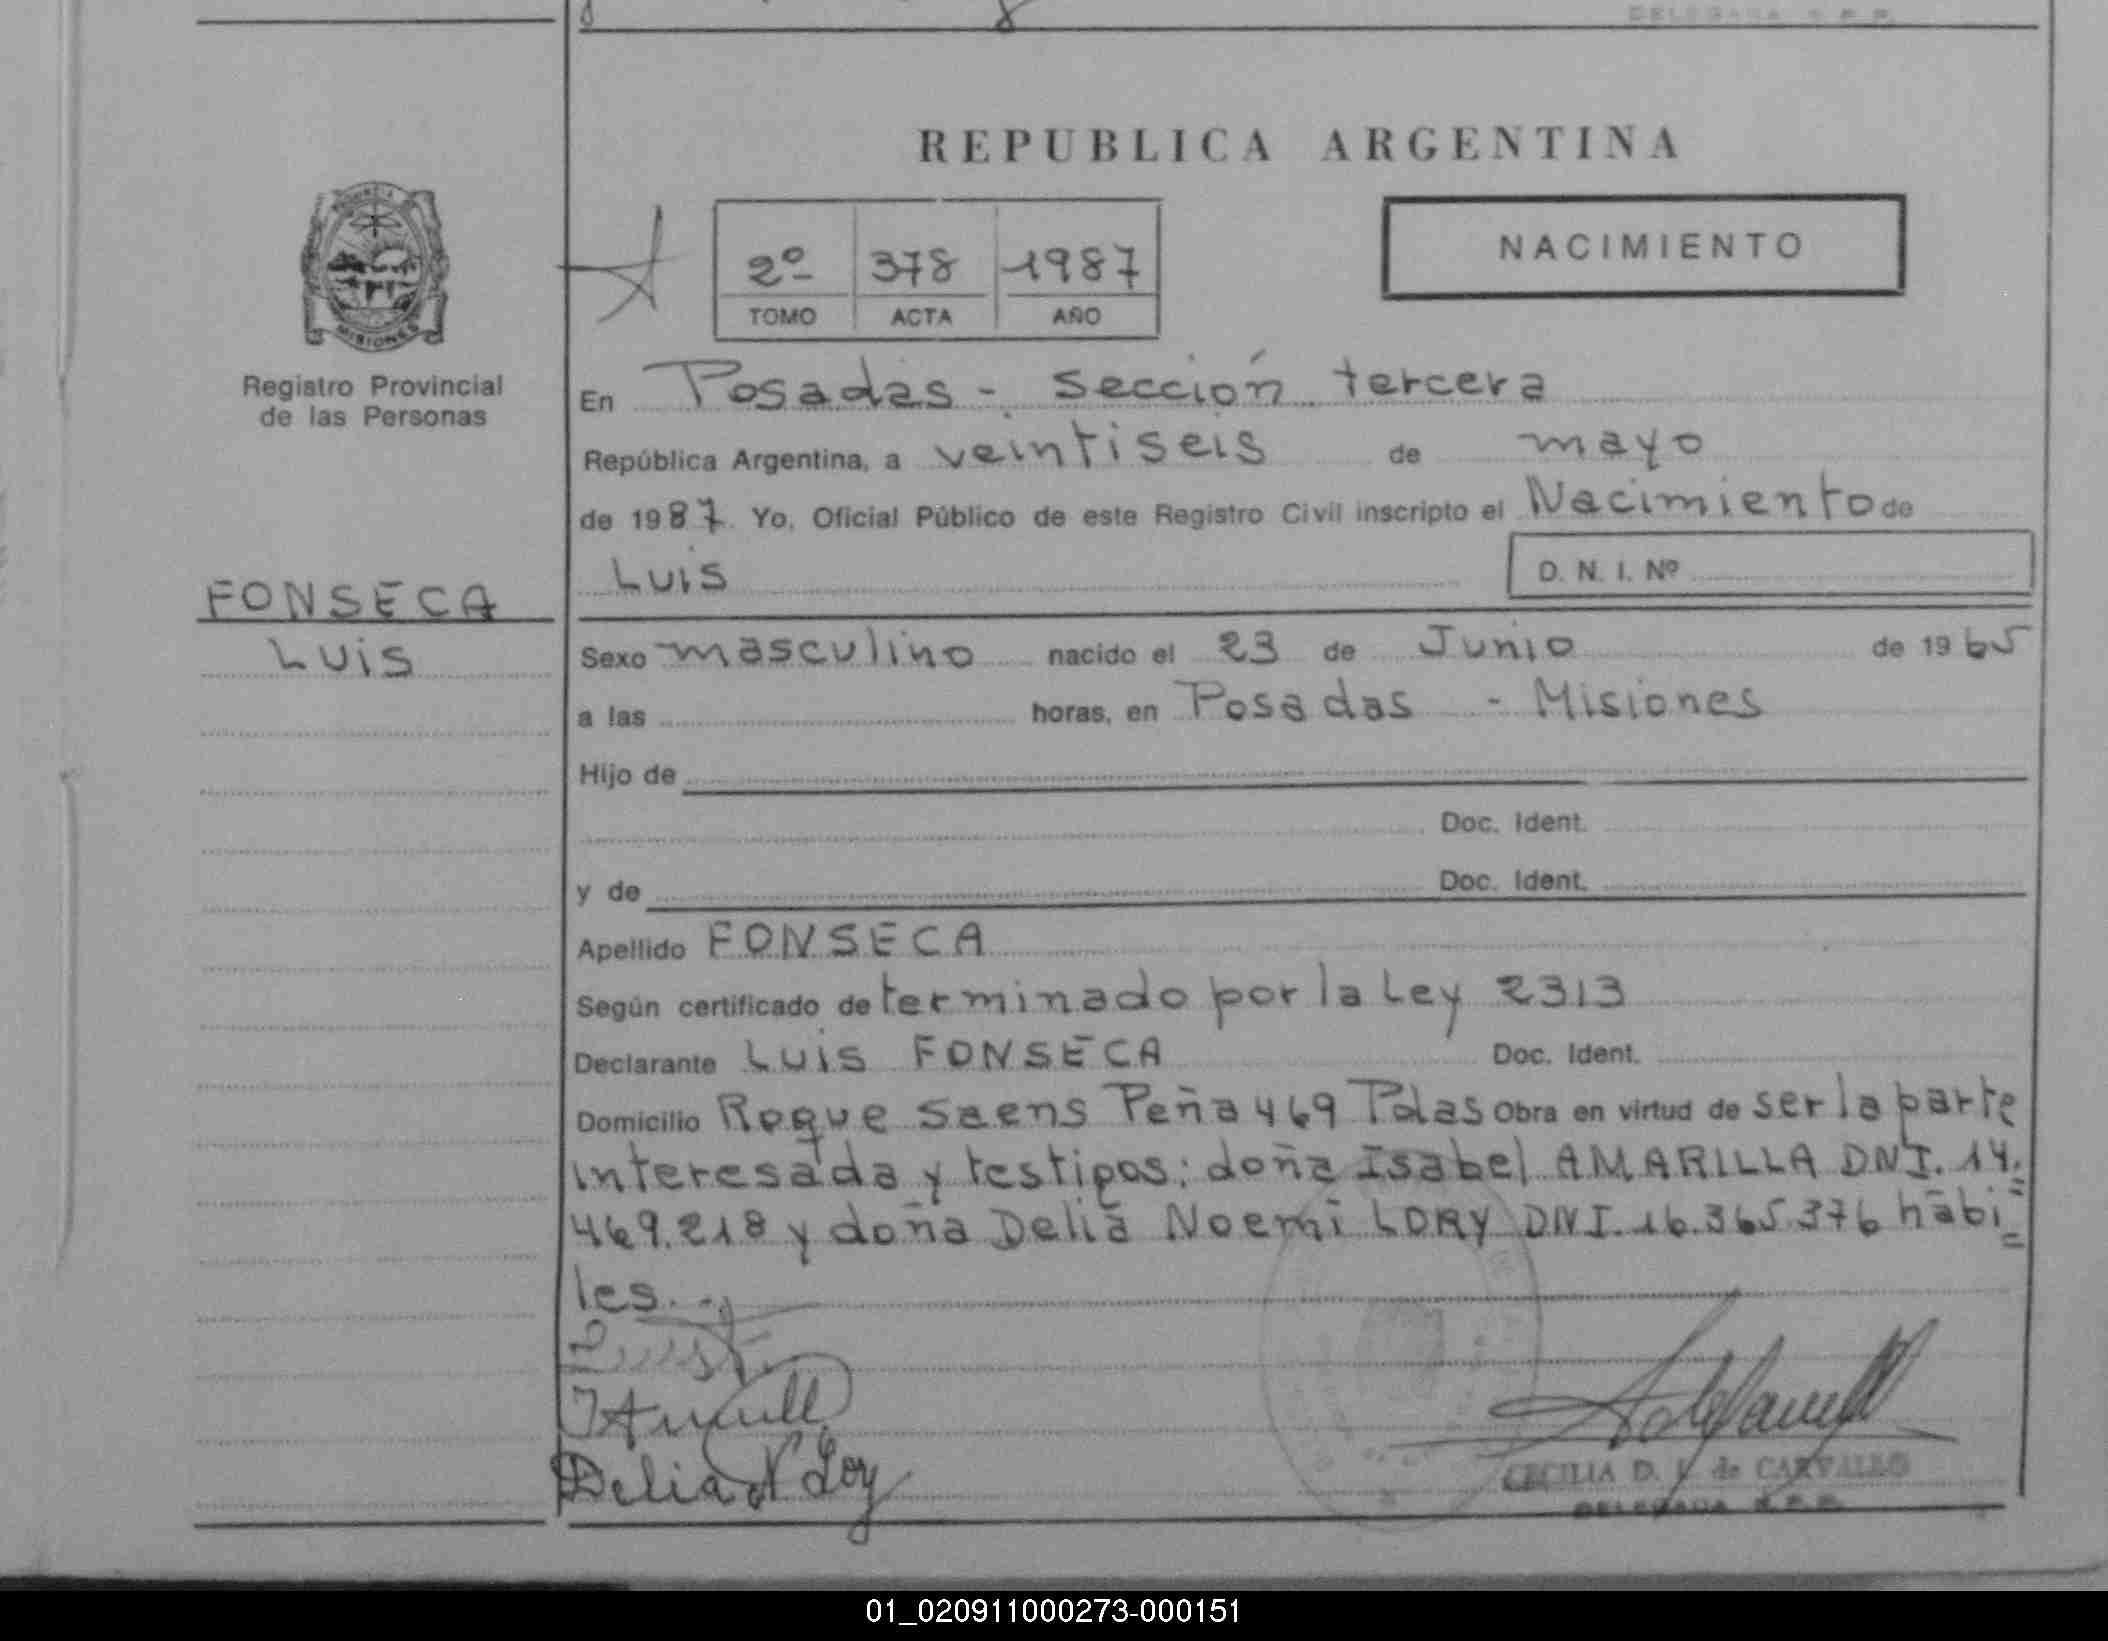 DELEGADA R.P.P.
REPUBLICA ARGENTINA
2º 378 1987
TOMO ACTA AÑO
NACIMIENTO
MISIONES
Registro Provincial
de las Personas
En Posadas - sección tercera
República Argentina, a veintiseis de mayo
de 1987. Yo, Oficial Público de este Registro Civil inscripto el Nacimiento de
Luis D. N. I. Nº
FONSECA
Luis
Sexo masculino nacido el 23 de Junio de 1965
a las horas, en Posadas - Misiones
Hijo de
Doc. Ident.
y de Doc. Ident.
Apellido FONSECA
Según certificado determinado por la Ley 2313
Declarante Luis FONSECA Doc. Ident.
Domicilio Roque Saens Peña 469 Pdas Obra en virtud de ser la parte
interesada y testigos: doña Isabel AMARILLA DNI. 14.
469.218 y doña Delia Noemi LORY DNI. 16.365.376 hábi=
les.-
Luis
Delia N Loy
CECILIA D. de CARVALLO
DELEGADA R.P.P.
01_020911000273-000151